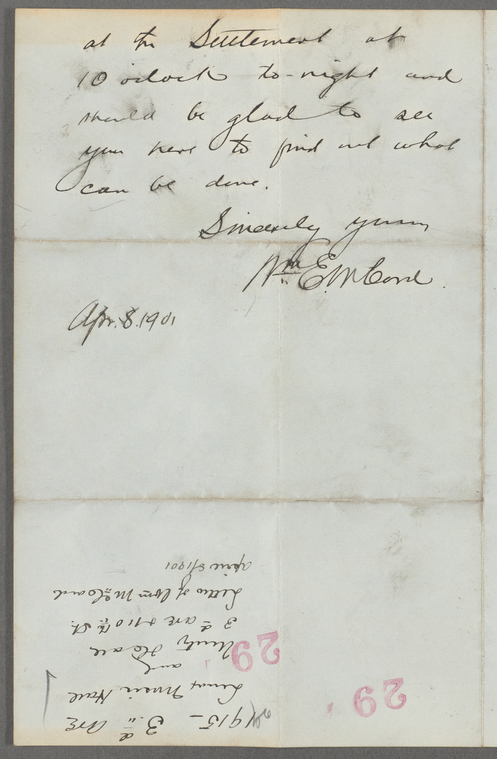 at the Settlement at
10 o'clock to-night and
should be glad to see
you here to find out what
can be done.
Sincerely yours,
Wm E. McCord.
Apr. 8. 1901
1915- 3rd Ave
Lenox Music Hall
and
Unity Hall
3rd ave & 110th St.
Letter of Wm McCord
April 8/1901
29
29